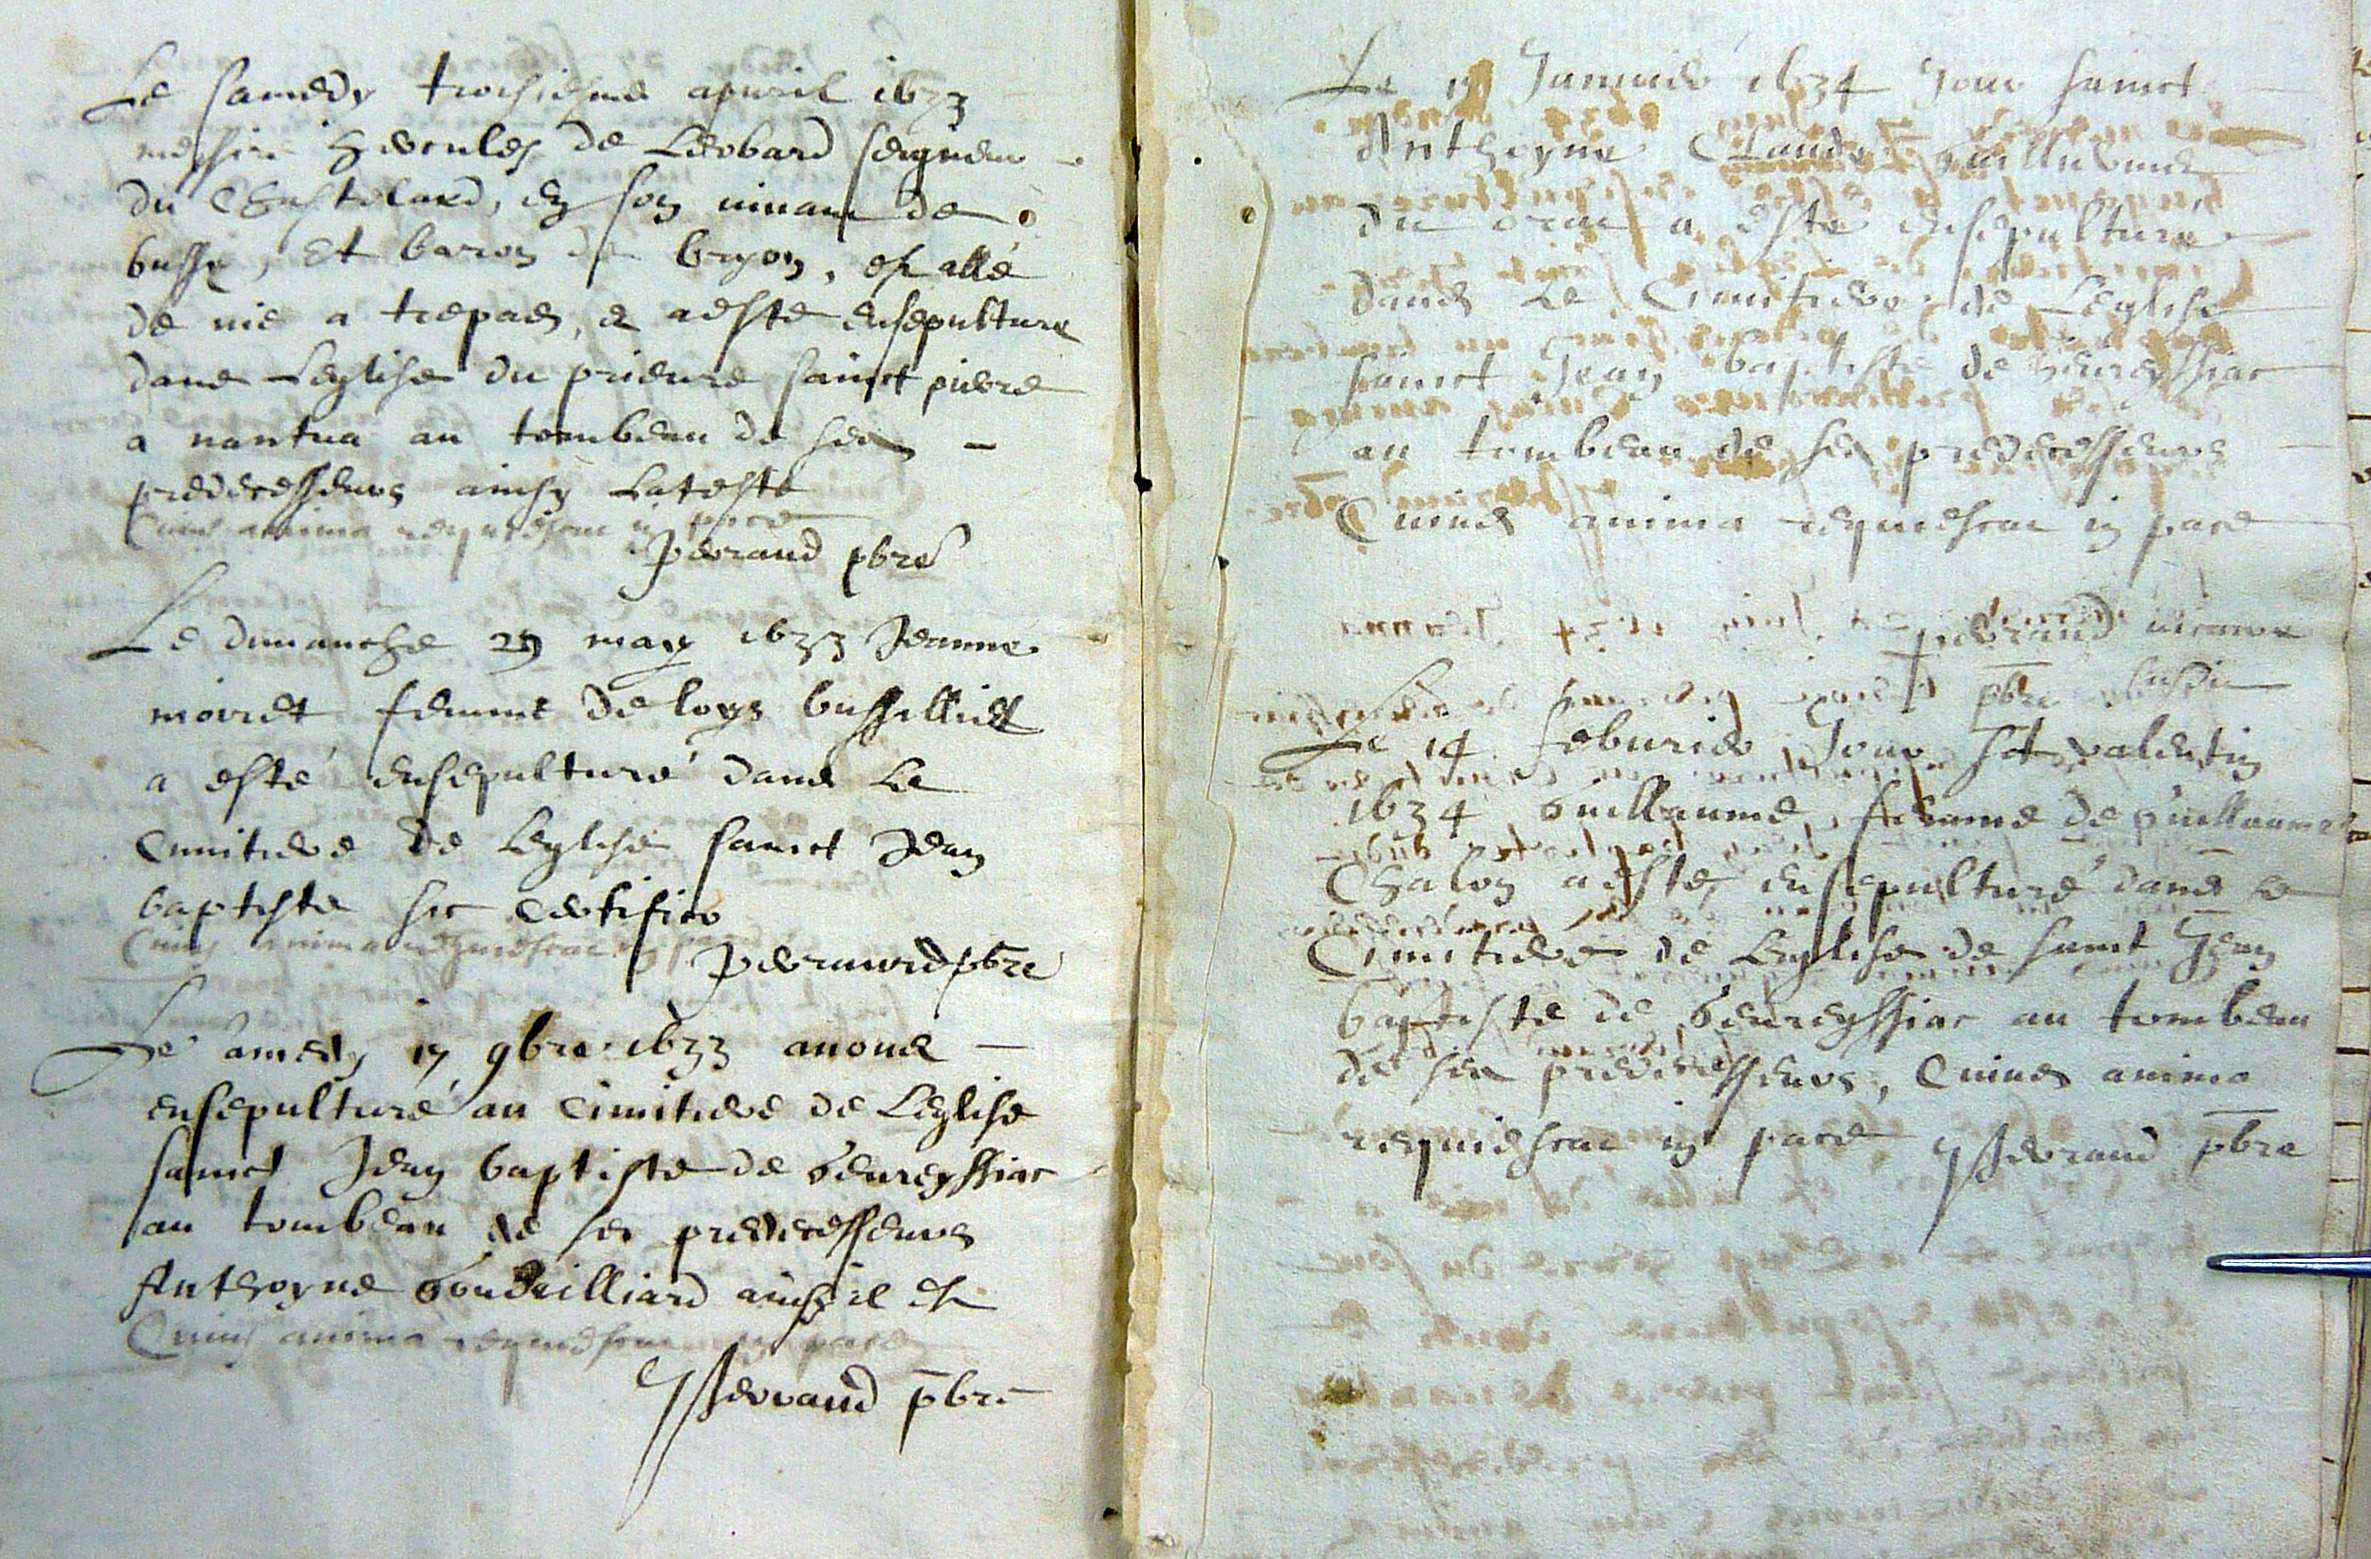 Le samedy troisiesme apuril 1633
messire Hercules de Leobard seigneur
du Chastelard, en son uiuant de
bussy, et baron de bryon, est allé
de uie a trepas, & a esté ensepulturé
dans Leglise du prieuré sainct pierre
a nantua au tombeau de ses
predecesseurs ainsy Lateste
Cuius anima requiescat in pace
Perraud pbre
Le dimanche 29 may 1633 Jeanne
moiret femme de loys bussilliet
a esté ensepulturé dans Le
Cimitiere de Leglise sainct Jean
baptiste sic Certifico
Cuius anima requiescat in pace
Perraud pbre
Le samedy 17 9bre 1633 auons
ensepulturé au Cimitiere de Leglise
sainct Jean baptiste de Geureyssiac
au tombeau de ses predecesseurs
Anthoyne Goudeilliard ainsy il est
Cuius anima requiescat in pace
Perraud pbre
Le 17 Januier 1634 Jour sainct
Anthoyne Claude
du a esté ensepulturé
dans Le Cimitiere de Leglise
sainct Jean baptiste de Geureyssiac
au tombeau de ses predecesseurs
Cuius anima requiescat in pace
perraud uicaire
pbre
Le 14 feburier Jour sct valentin
1634 Guillauma femme de Guillaume
Chalon a esté ensepulturé dans Le
Cimitiere de Leglise de sainct Jean
baptiste de Geureyssiac au tombeau
de ses predecesseurs, Cuius anima
requiescat in pace Perraud pbre